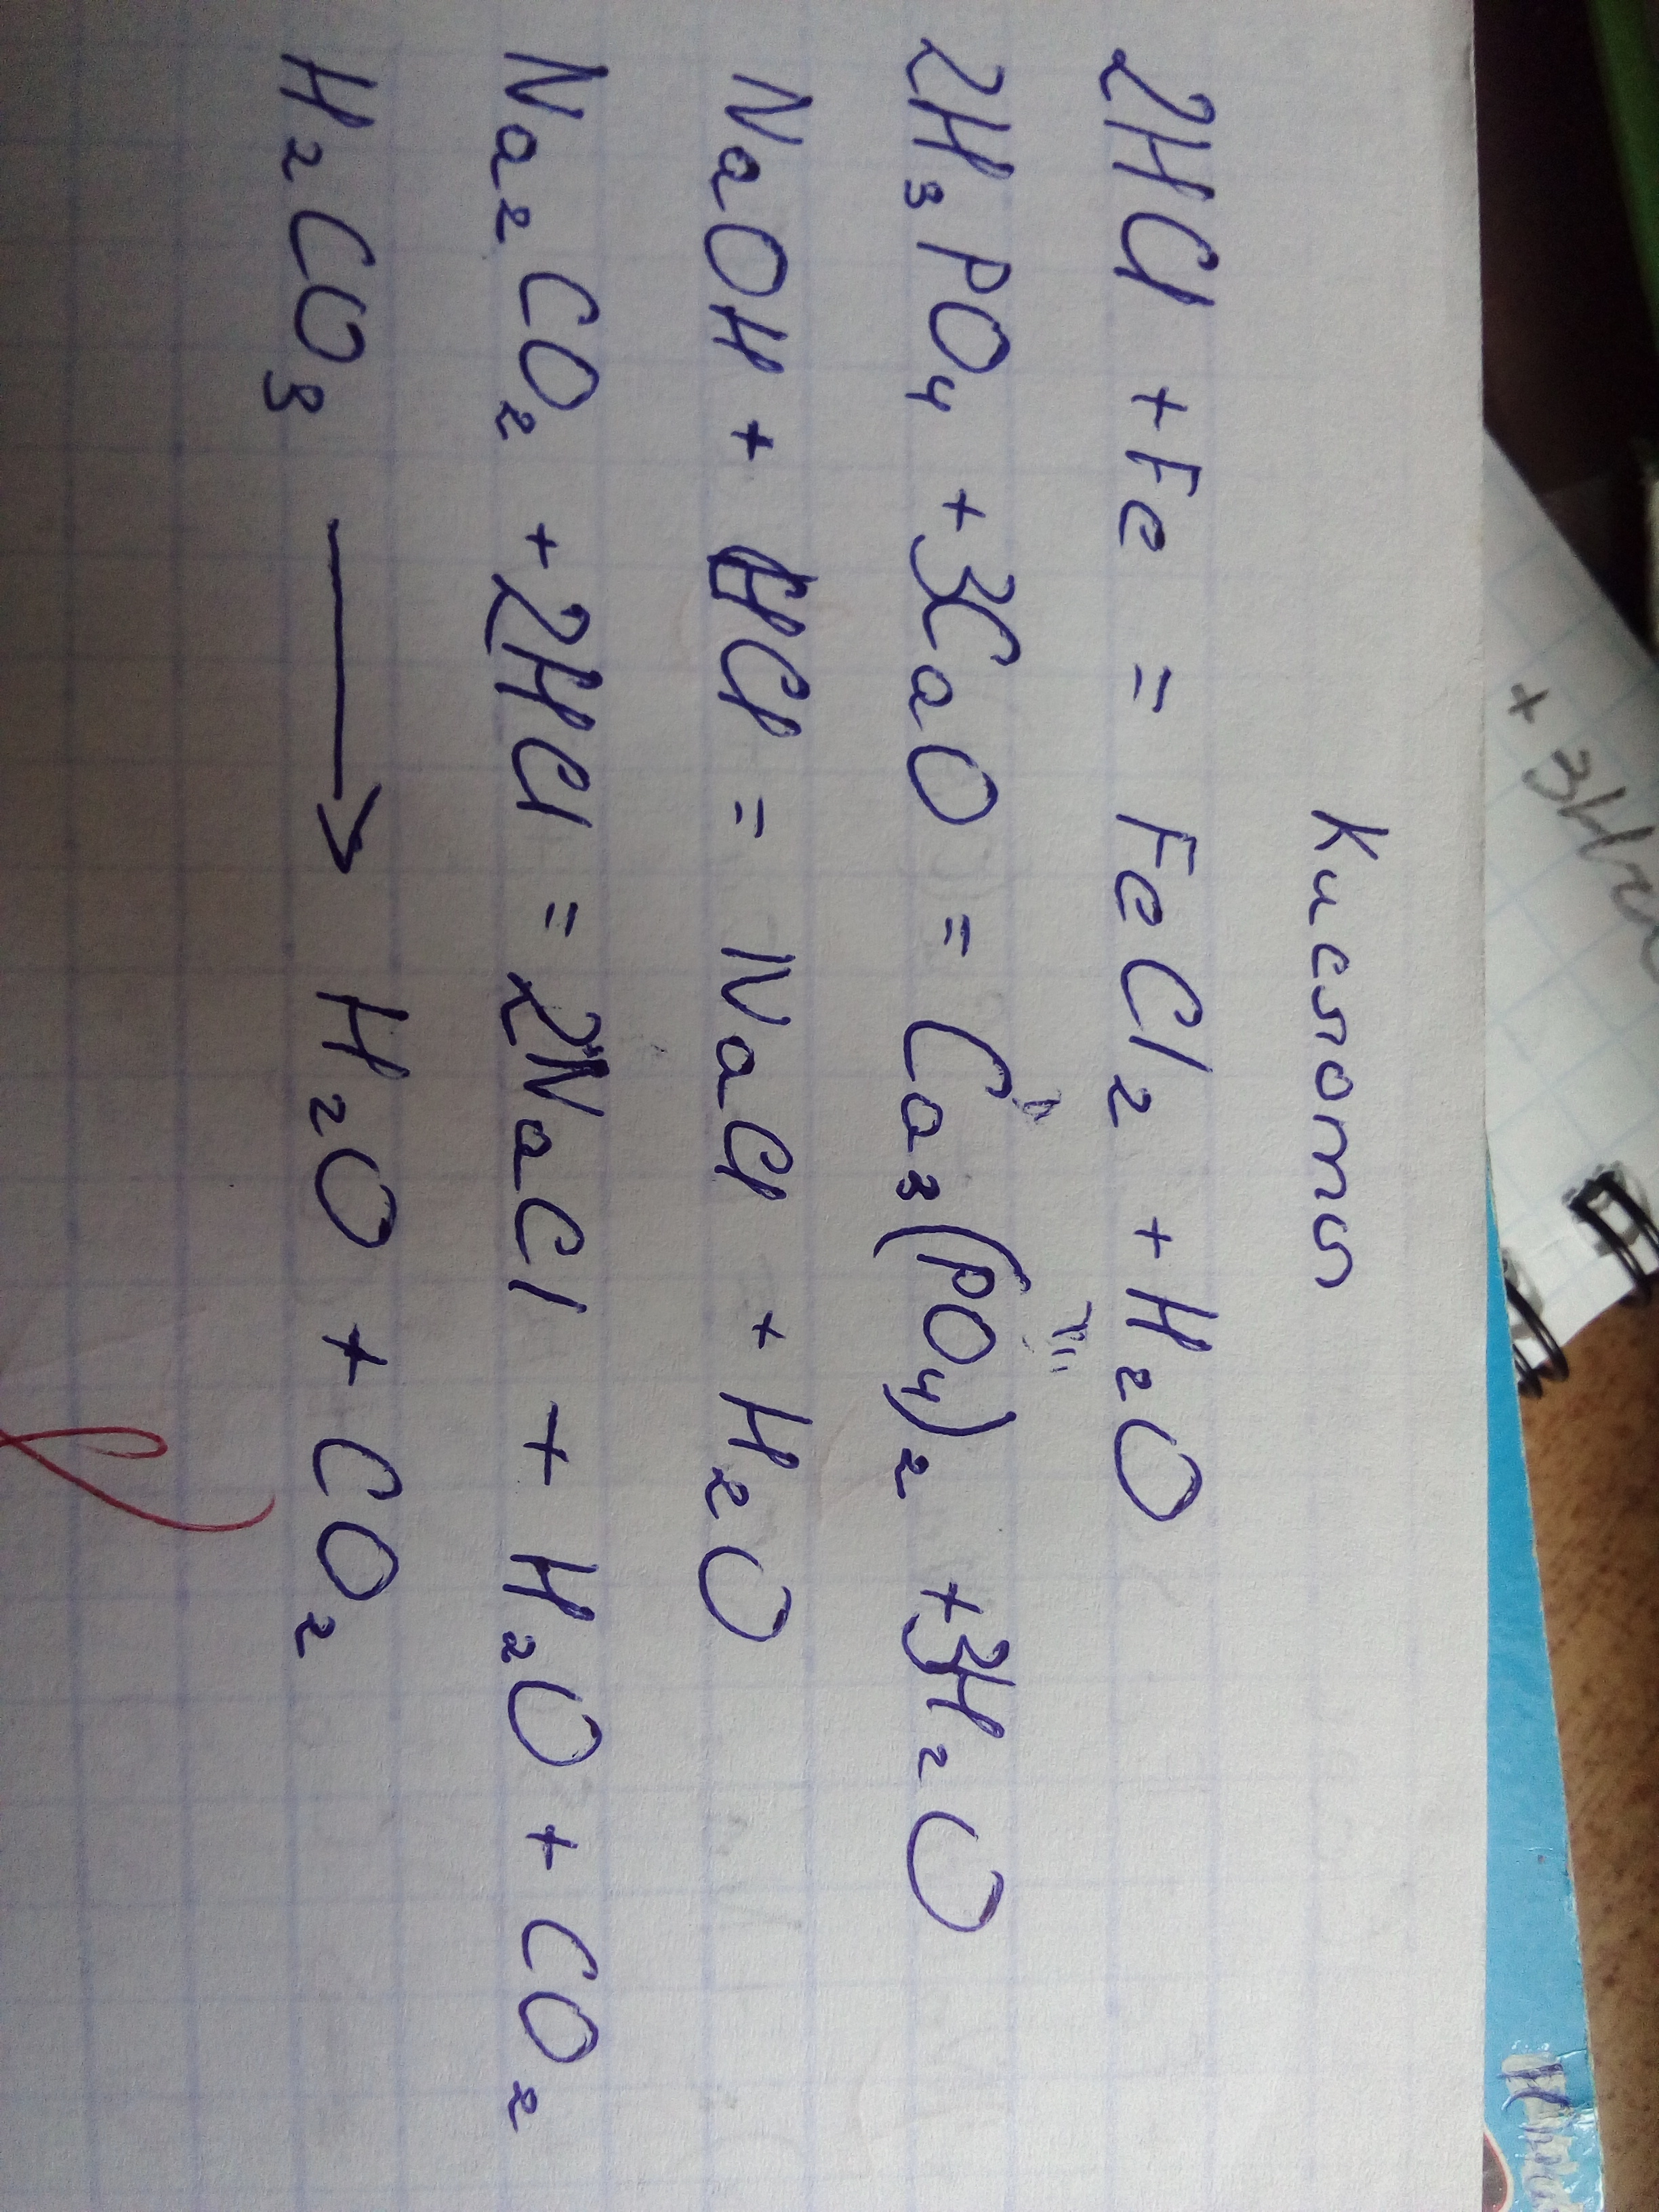 Кислоти
2HCl + Fe = FeCl₂ + H₂O
2H₃PO₄ + 3CaO = Ca₃(PO₄)₂ + 3H₂O
NaOH + HCl = NaCl + H₂O
Na₂CO₂ + 2HCl = 2NaCl + H₂O + CO₂
H₂CO₃ → H₂O + CO₂